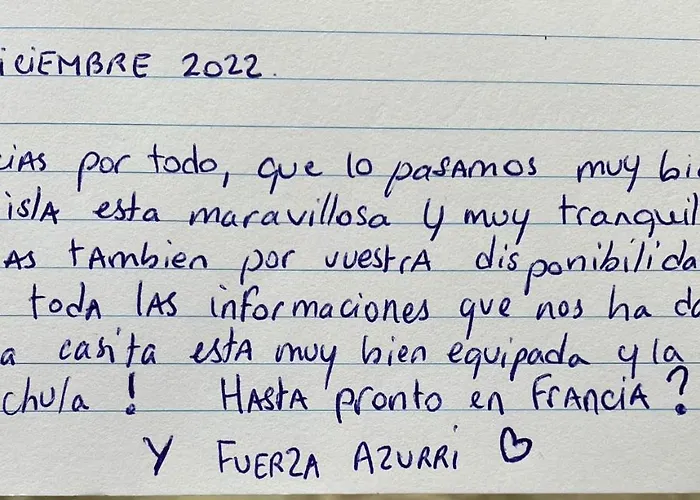 iciEMBRE 2022.
ciAS por todo, que lo pasamos muy bi
isla esta maravillosa y muy tranquil
AS tambien por vuestra disponibilida
toda las informaciones que nos ha da
a casita esta muy bien equipada y la
chula ! Hasta pronto en Francia ?
Y FUERZA AZURRI